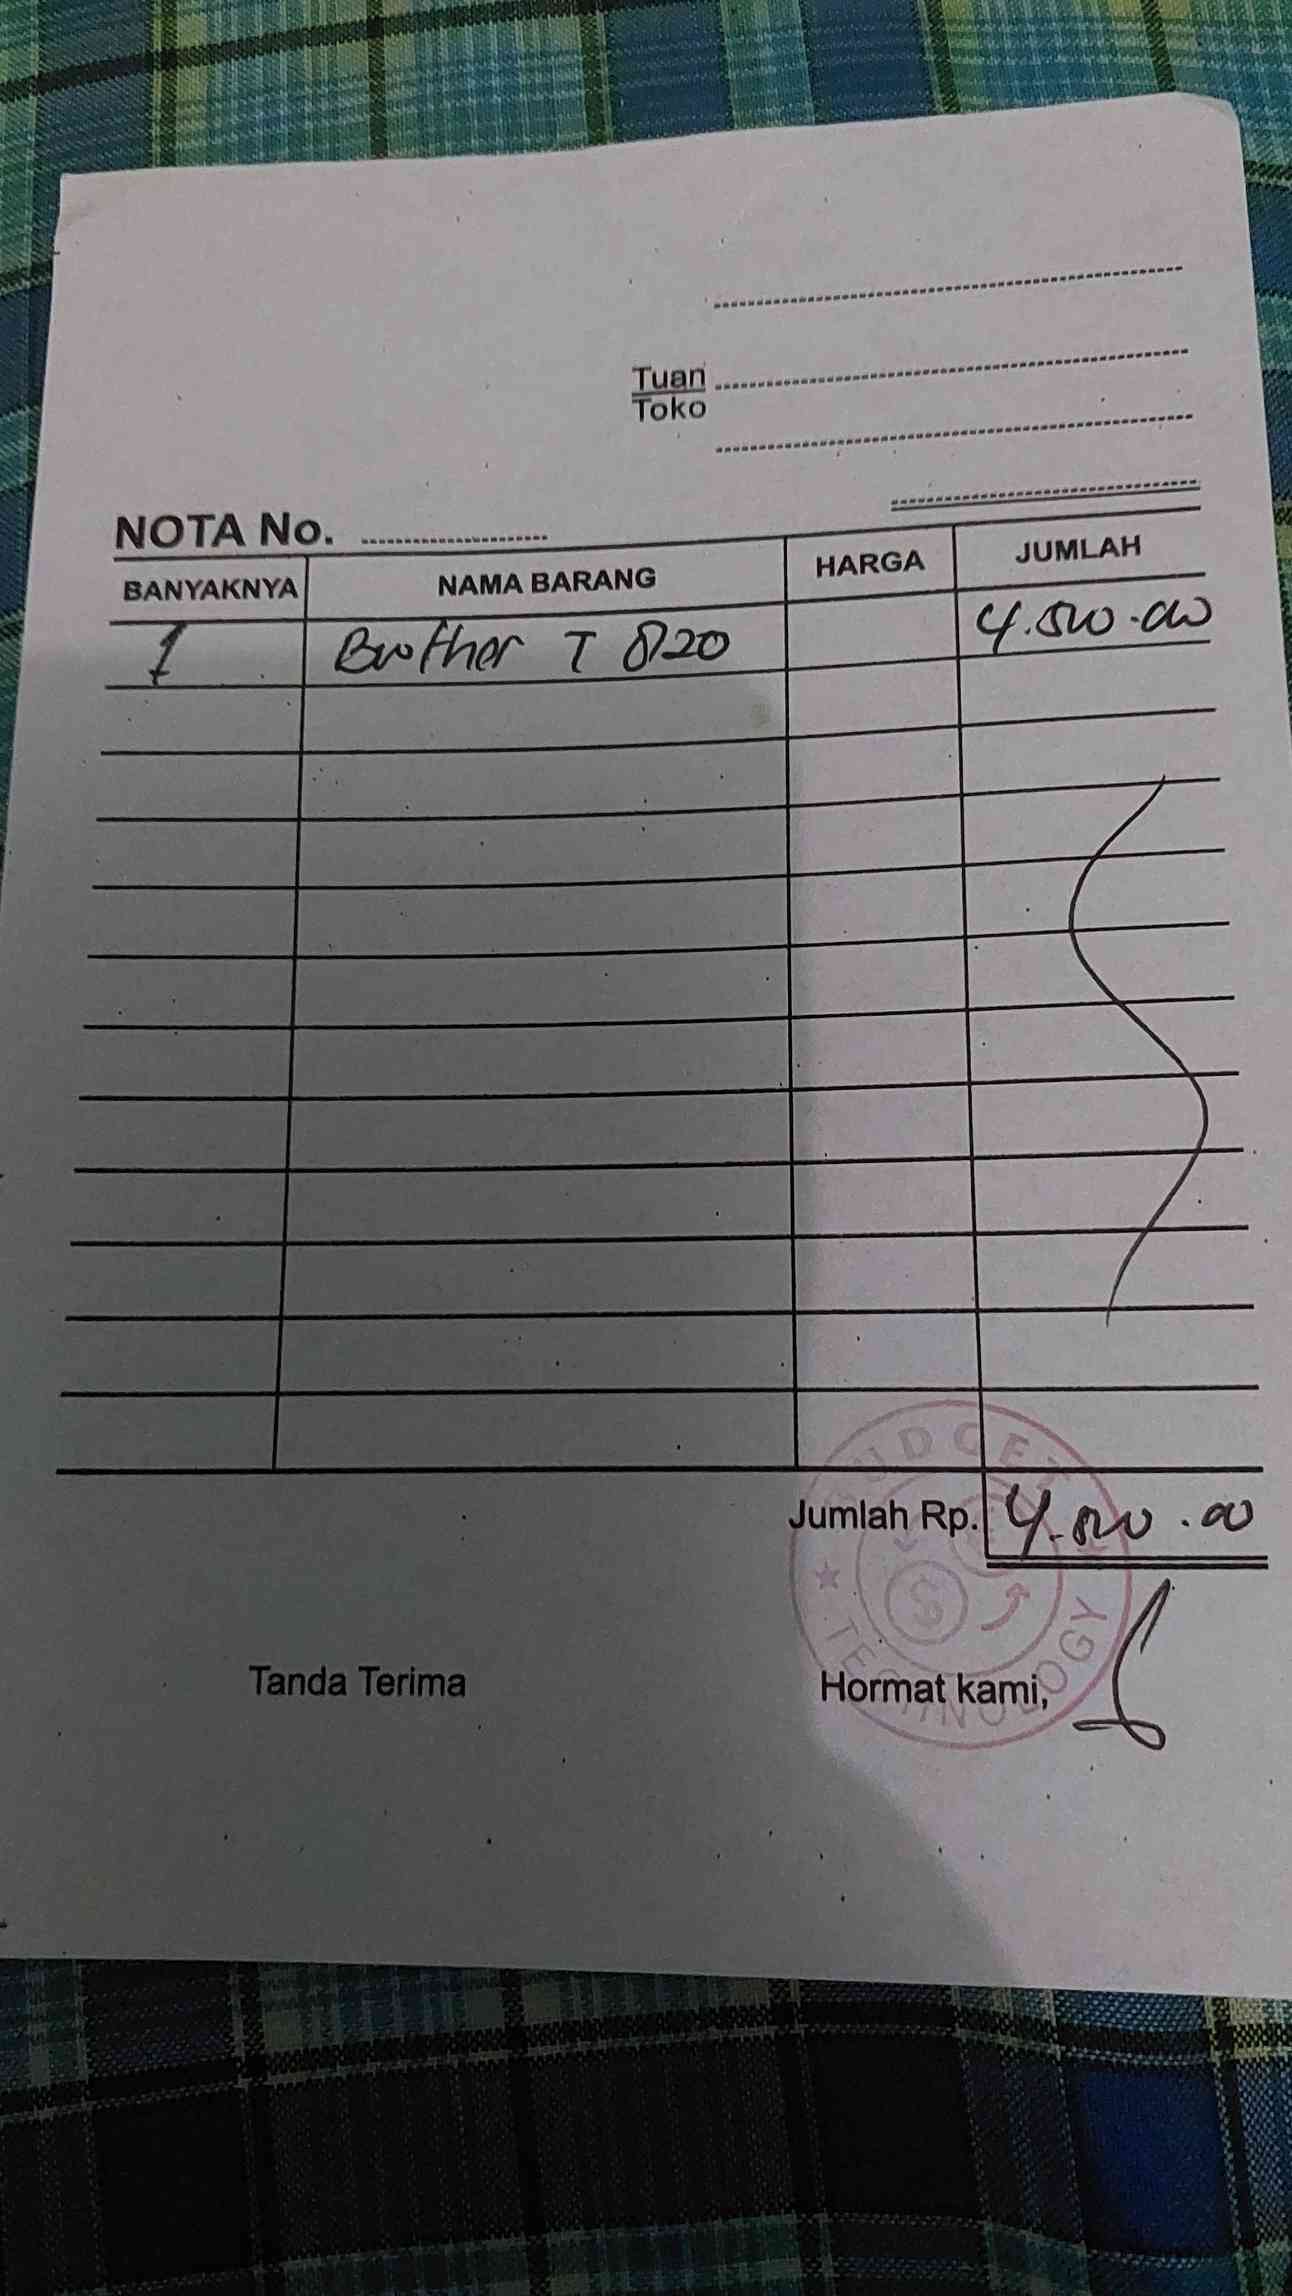 Tuan
Toko
NOTA No.
BANYAKNYA NAMA BARANG HARGA JUMLAH
1 Brother T 820 4.500.000
BUDGET
Jumlah Rp. 4.500.00
TECHNOLOGY
Tanda Terima Hormat kami,